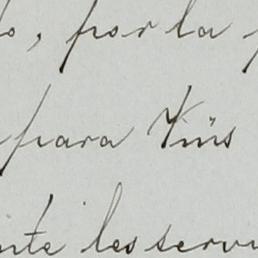 o, por la
para Vms
nte les serv